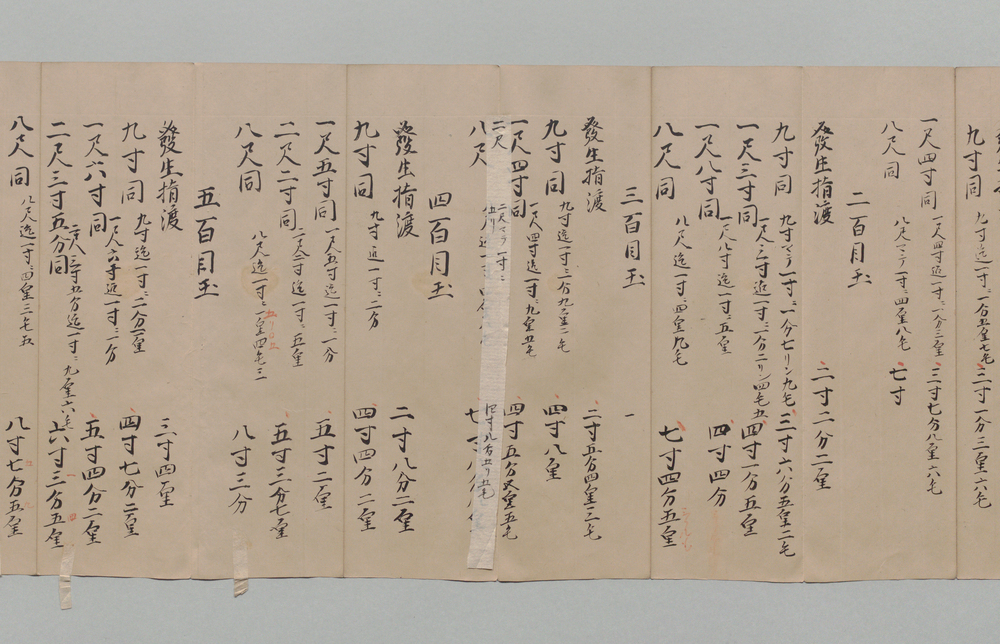 九寸同
三寸一分三厘六毛
一尺四寸同 一尺四寸迄一寸ニ一分三厘 三寸七分八厘六毛
八尺同 八尺マテ一寸ニ四厘八毛 七寸
二百目玉
發生指渡 二寸二分二厘
九寸同 九寸マテ一寸ニ一分七リン九毛 三寸六分五厘二毛
一尺三寸同 一尺三寸迄一寸ニ一分二リン四毛五 四寸一分五厘
一尺八寸同 一尺八寸迄一寸ニ五厘 四寸四分
八尺同 八尺迄一寸ニ四厘九毛 七寸四分五厘
三百目玉
發生指渡 二寸五分四厘三毛
九寸同 九寸迄一寸ニ二分九厘二毛 四寸八厘
一尺四寸同 一尺四寸迄一寸ニ九厘五毛 四寸五分五厘五毛
二尺 二尺マテ一寸ニ
八尺
四百目玉
發生指渡 二寸八分二厘
九寸同 九寸迄一寸ニ二分 四寸四分二厘
一尺五寸同 一尺五寸迄一寸ニ一分 五寸二厘
二尺二寸同 二尺二寸迄一寸ニ五厘 五寸三分七厘
八尺同 八尺迄一寸ニ 厘四毛三 八寸三分
五百目玉
發生指渡 三寸四厘
九寸同 九寸迄一寸ニ二分一厘 四寸七分二厘
一尺六寸同 一尺六寸迄一寸ニ一分 五寸四分二厘
二尺三寸五分同 二尺三寸五分迄一寸ニ九厘六毛 六寸三分五厘
八尺同 八尺迄一寸ニ四厘三毛五 八寸七分五厘